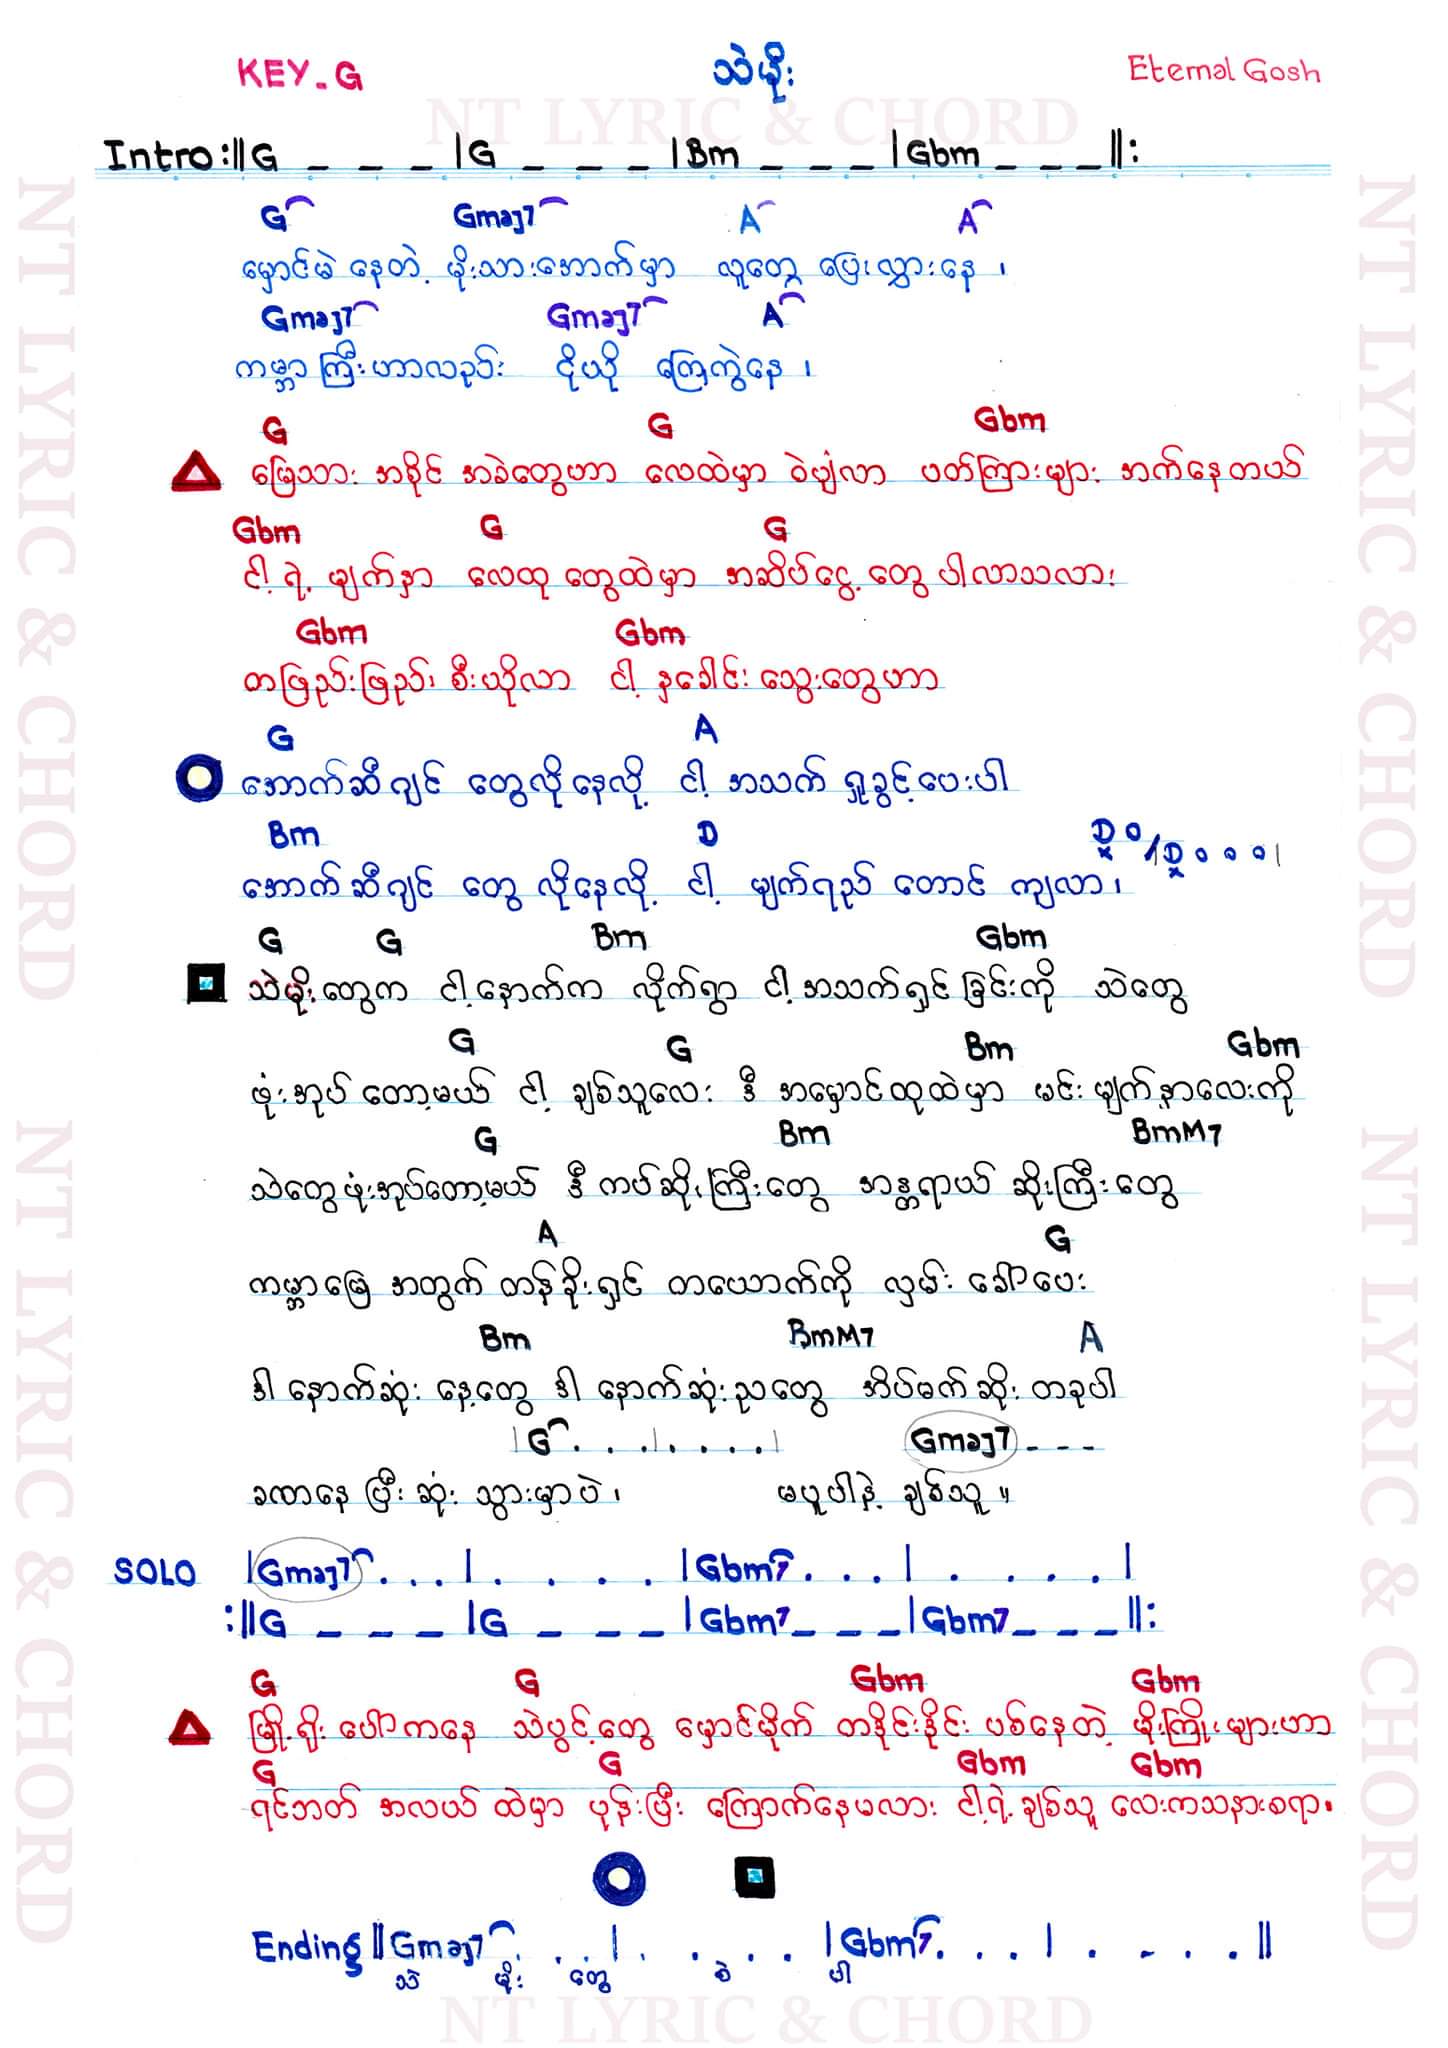 KEY - G သဲမိုး Eternal Gosh
NT LYRIC & CHORD
Intro :||G _ _ _ |G _ _ _ |Bm _ _ _ |Gbm _ _ _ ||:
G Gmaj7 A A
မှောင်မဲ နေတဲ့ မိုးသားအောက်မှာ လူတွေ ပြေးလွှားနေ ၊
Gmaj7 Gmaj7 A
ကမ္ဘာကြီးဟာလည်း ငိုယို ကြေကွဲနေ ၊
G G Gbm
မြေသား အစိုင် အခဲတွေဟာ လေထဲမှာ ဝဲပျံလာ ပတ်ကြားများ အက်နေတယ်
Gbm G G
ငါ့ ရဲ့ မျက်နှာ လေထု တွေထဲမှာ အဆိပ်ငွေ့ တွေ ပါလာသလား
Gbm Gbm
တဖြည်းဖြည်း စီးယိုလာ ငါ့ နှခေါင်း သွေးတွေဟာ
G A
အောက်ဆီဂျင် တွေလိုနေလို့ ငါ့ အသက် ရှူခွင့်ပေးပါ
Bm D D o / D o o o |
အောက်ဆီဂျင် တွေ လိုနေလို့ ငါ့ မျက်ရည် တောင် ကျလာ ၊
G G Bm Gbm
သဲမိုးတွေက ငါ့နောက်က လိုက်ရွာ ငါ့ အသက်ရှင် ခြင်းကို သဲတွေ
G G Bm Gbm
ဖုံးအုပ် တော့မယ် ငါ့ ချစ်သူလေး ဒီ အမှောင်ထုထဲမှာ မင်း မျက်နှာလေးကို
G Bm BmM7
သဲတွေဖုံးအုပ်တော့မယ် ဒီ ကပ်ဆိုးကြီးတွေ အန္တရာယ် ဆိုးကြီးတွေ
A G
ကမ္ဘာမြေ အတွက် တန်ခိုးရှင် တယောက်ကို လှမ်း ခေါ်ပေး
Bm BmM7 A
ဒါ နောက်ဆုံး နေ့တွေ ဒါ နောက်ဆုံးညတွေ အိပ်မက်ဆိုး တခုပါ
|G . . . | . . . . | Gmaj7 - - -
ခဏနေ ပြီး ဆုံး သွားမှာပဲ ၊ မပူပါနဲ့ ချစ်သူ ။
SOLO |Gmaj7 . . . | . . . . |Gbm7 . . . | . . . . |
:||G _ _ _ |G _ _ _ |Gbm7 _ _ _ |Gbm7 _ _ _ ||:
G G Gbm Gbm
မြို့ရိုး ပေါ်ကနေ သဲပွင့်တွေ မှောင်မိုက် တဒိုင်းဒိုင်း ပစ်နေတဲ့ မိုးကြိုးများဟာ
G G Gbm Gbm
ရင်ဘတ် အလယ် ထဲမှာ ပုန်းပြီး ကြောက်နေမလား ငါ့ရဲ့ ချစ်သူ လေးကသနားစရာ ။
Ending ||Gmaj7 . . . | . . . . |Gbm7 . . . | . . . . ||
သဲ မိုး တွေ စဲ ပါ
NT LYRIC & CHORD
NT LYRIC & CHORD
NT LYRIC & CHORD
NT LYRIC & CHORD
NT LYRIC & CHORD